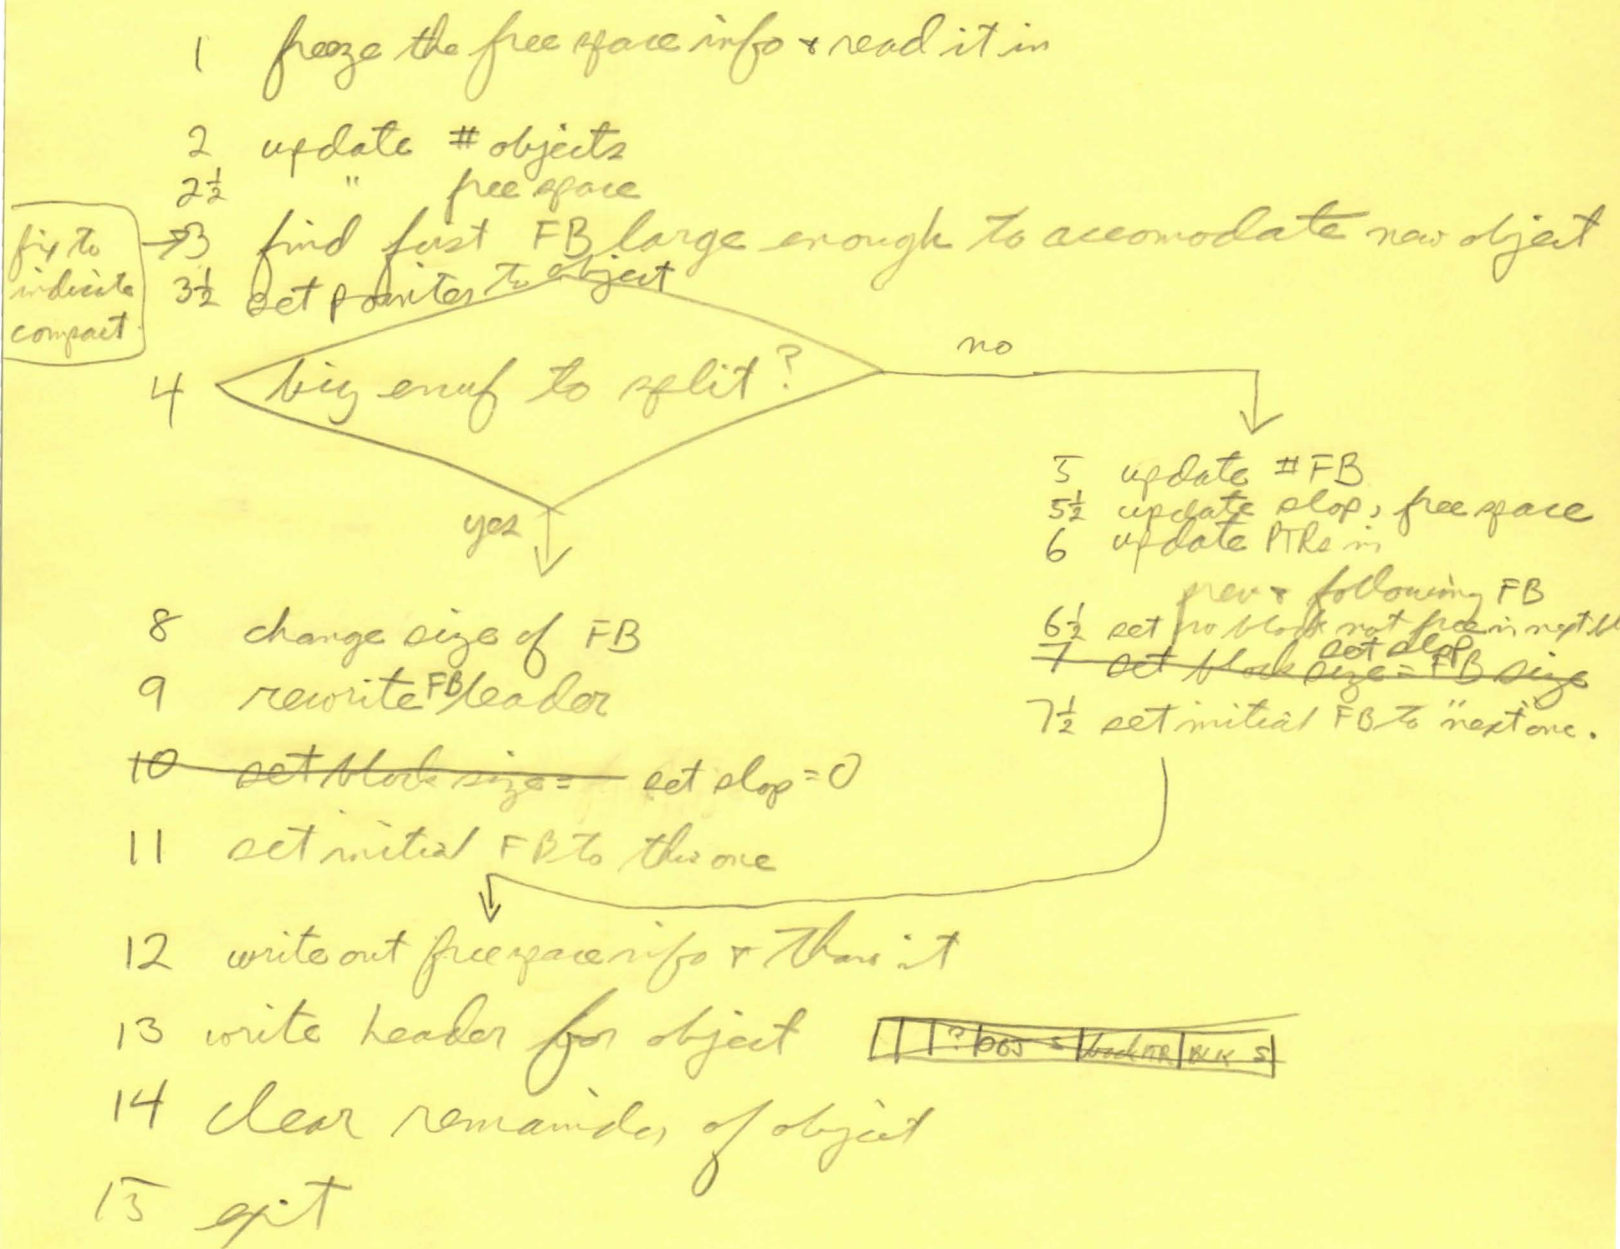 1 freeze the free space info & read it in
2 update # objects
2½ " free space
fix to
indicate
compact
→3 find first FB large enough to accomodate new object
3½ set pointer to object
4 big enuf to split?
no
yes
5 update # FB
5½ update slop, free space
6 update PTRs in
prev & following FB
6½ set no block not free in next
set slop
7 set block size = FB size
7½ set initial FB to "next" one.
8 change size of FB
9 rewrite FB header
10 set block size = set slop = 0
11 set initial FB to this one
12 write out free space info & thaw it
13 write header for object
? OBJ S PTR BLK S
14 clear remainder of object
15 exit